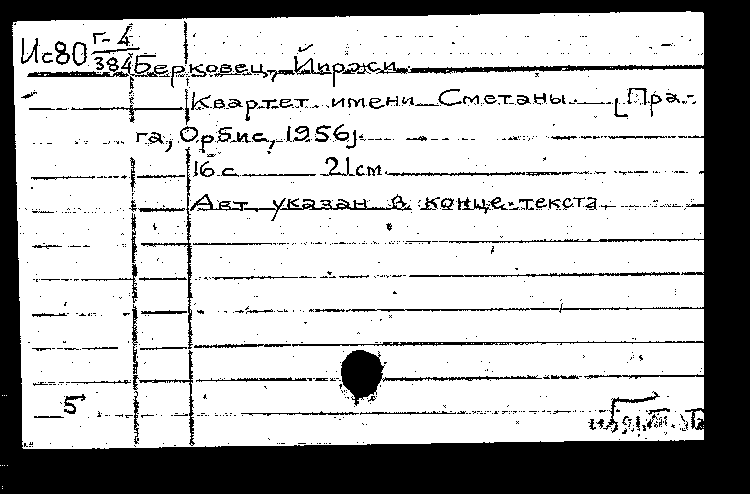 Ис80 Г-4/384
Берковец, Йиржи
Квартет имени Сметаны. [Пра-
га, Орбис, 1956].
16 с 21 см
Авт. указан в конце текста.
5